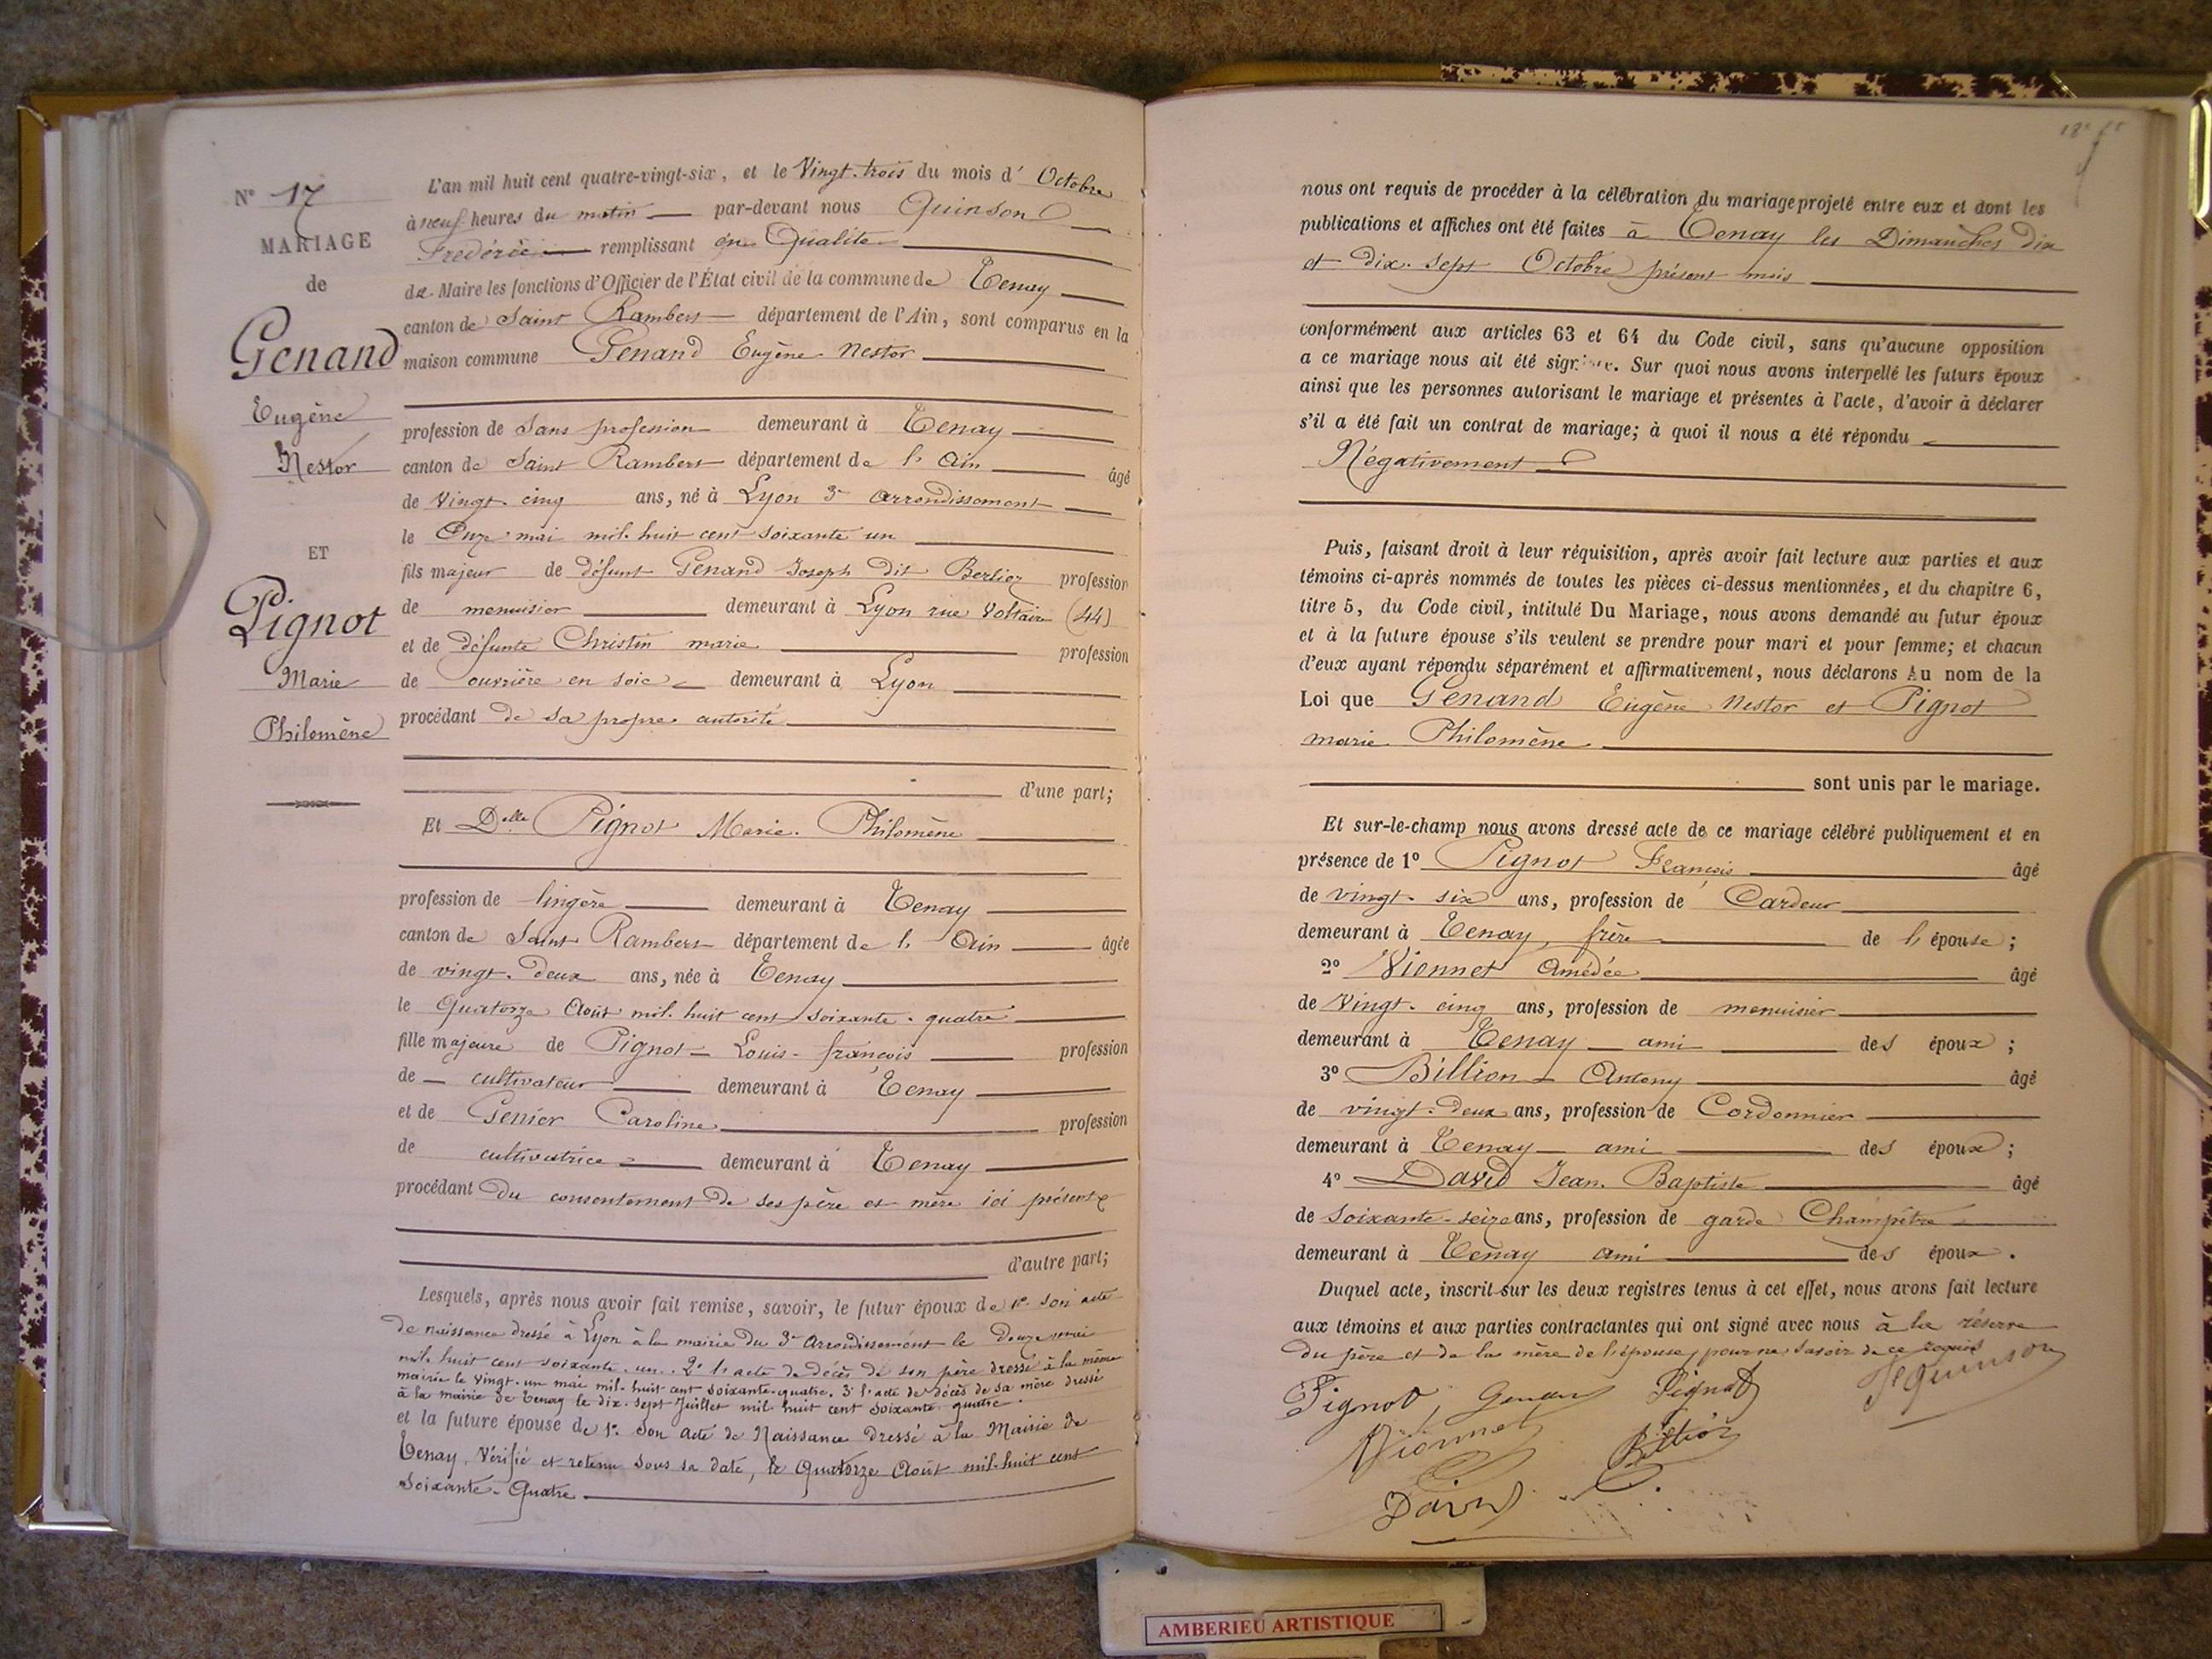 N° 17
MARIAGE
de
Genand
Eugène
Nestor
ET
Pignot
Marie
Philomène
L'an mil huit cent quatre-vingt-six, et le Vingt-trois du mois d' Octobre
à neuf heures du matin par-devant nous Quinson
Frédéric remplissant en Qualité
de Maire les fonctions d'Officier de l'État civil de la commune de Tenay
canton de Saint Rambert département de l'Ain, sont comparus en la
maison commune Genand Eugène Nestor
profession de Sans profession demeurant à Tenay
canton de Saint Rambert département de l'Ain âgé
de Vingt-cinq ans, né à Lyon 3e arrondissement
le Onze mai mil huit cent soixante un
fils majeur de défunt Genand Joseph dit Berlioz profession
de menuisier demeurant à Lyon rue Voltaire (44)
et de défunte Christin marie profession
de ouvrière en soie demeurant à Lyon
procédant de sa propre autorité
d'une part;
Et Delle Pignot Marie Philomène
profession de lingère demeurant à Tenay
canton de Saint Rambert département de l'Ain âgée
de vingt-deux ans, née à Tenay
le Quatorze Août mil huit cent soixante-quatre
fille majeure de Pignot Louis-françois profession
de cultivateur demeurant à Tenay
et de Genier Caroline profession
de cultivatrice demeurant à Tenay
procédant du consentement de ses père et mère ici présents
d'autre part;
Lesquels, après nous avoir fait remise, savoir, le futur époux de 1° son acte
de naissance dressé à Lyon à la mairie du 3e arrondissement le Douze mai
mil huit cent soixante-un. 2° l'acte de décès de son père dressé à la même
mairie le vingt-un mai mil huit cent soixante-quatre. 3° l'acte de décès de sa mère dressé
à la mairie de Tenay le dix-sept Juillet mil huit cent soixante quatre.
et la future épouse de 1° Son acte de Naissance dressé à la Mairie de
Tenay, Vérifié et retenu sous sa date, le Quatorze Août mil huit cent
Soixante-Quatre
nous ont requis de procéder à la célébration du mariage projeté entre eux et dont les
publications et affiches ont été faites à Tenay les Dimanches dix
et dix-sept Octobre présent mois
conformément aux articles 63 et 64 du Code civil, sans qu'aucune opposition
a ce mariage nous ait été signifiée. Sur quoi nous avons interpellé les futurs époux
ainsi que les personnes autorisant le mariage et présentes à l'acte, d'avoir à déclarer
s'il a été fait un contrat de mariage; à quoi il nous a été répondu
Négativement
Puis, faisant droit à leur réquisition, après avoir fait lecture aux parties et aux
témoins ci-après nommés de toutes les pièces ci-dessus mentionnées, et du chapitre 6,
titre 5, du Code civil, intitulé Du Mariage, nous avons demandé au futur époux
et à la future épouse s'ils veulent se prendre pour mari et pour femme; et chacun
d'eux ayant répondu séparément et affirmativement, nous déclarons Au nom de la
Loi que Genand Eugène Nestor et Pignot
marie Philomène
sont unis par le mariage.
Et sur-le-champ nous avons dressé acte de ce mariage célébré publiquement et en
présence de 1° Pignot François âgé
de vingt-six ans, profession de Cardeur
demeurant à Tenay, frère de l'épouse;
2° Viennet Amédée âgé
de Vingt-cinq ans, profession de menuisier
demeurant à Tenay ami des époux;
3° Billion Antony âgé
de vingt-deux ans, profession de Cordonnier
demeurant à Tenay ami des époux;
4° David Jean Baptiste âgé
de Soixante-seize ans, profession de garde Champêtre
demeurant à Tenay ami des époux.
Duquel acte, inscrit sur les deux registres tenus à cet effet, nous avons fait lecture
aux témoins et aux parties contractantes qui ont signé avec nous à la réserve
du père et de la mère de l'épouse, pour ne savoir de ce requis
Pignot Genand Pignot Fc Quinson
Viennet Billion
David
AMBERIEU ARTISTIQUE